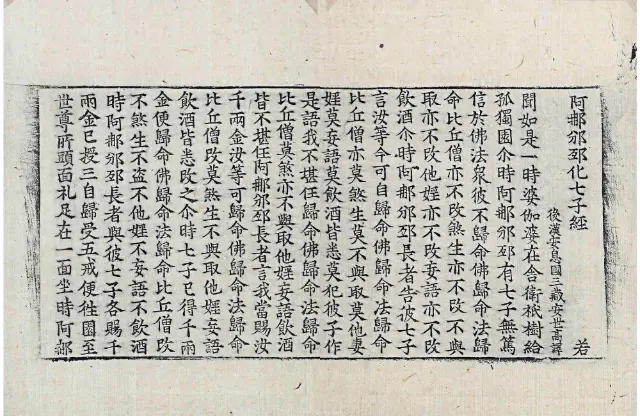 阿那邠邸化七子經 若
後漢安息國三藏安世高譯
聞如是一時婆伽婆在舍衛祇樹給
孤獨園尒時阿那邠邸有七子無篤
信於佛法衆彼不歸命佛歸命法歸
命比丘僧亦不改煞生亦不改不與
取亦不改他婬亦不改妄語亦不改
飲酒尒時阿那邠邸長者告彼七子
言汝等今可自歸命佛歸命法歸命
比丘僧亦莫煞生莫不與取莫他妻
婬莫妄語莫飲酒皆悉莫犯彼子作
是語我不堪任歸命佛歸命法歸命
比丘僧莫煞亦不與取他婬妄語飲酒
皆不堪任阿那邠邸長者言我當賜汝
千兩金汝等可歸命佛歸命法歸命
比丘僧改莫煞生不與取他婬妄語
飲酒皆悉改之尒時七子已得千兩
金便歸命佛歸命法歸命比丘僧改
不煞生不盜不他婬不妄語不飲酒
時阿那邠邸長者與彼七子各賜千
兩金已授三自歸受五戒便徃園至
世尊所頭面礼足在一面坐時阿那